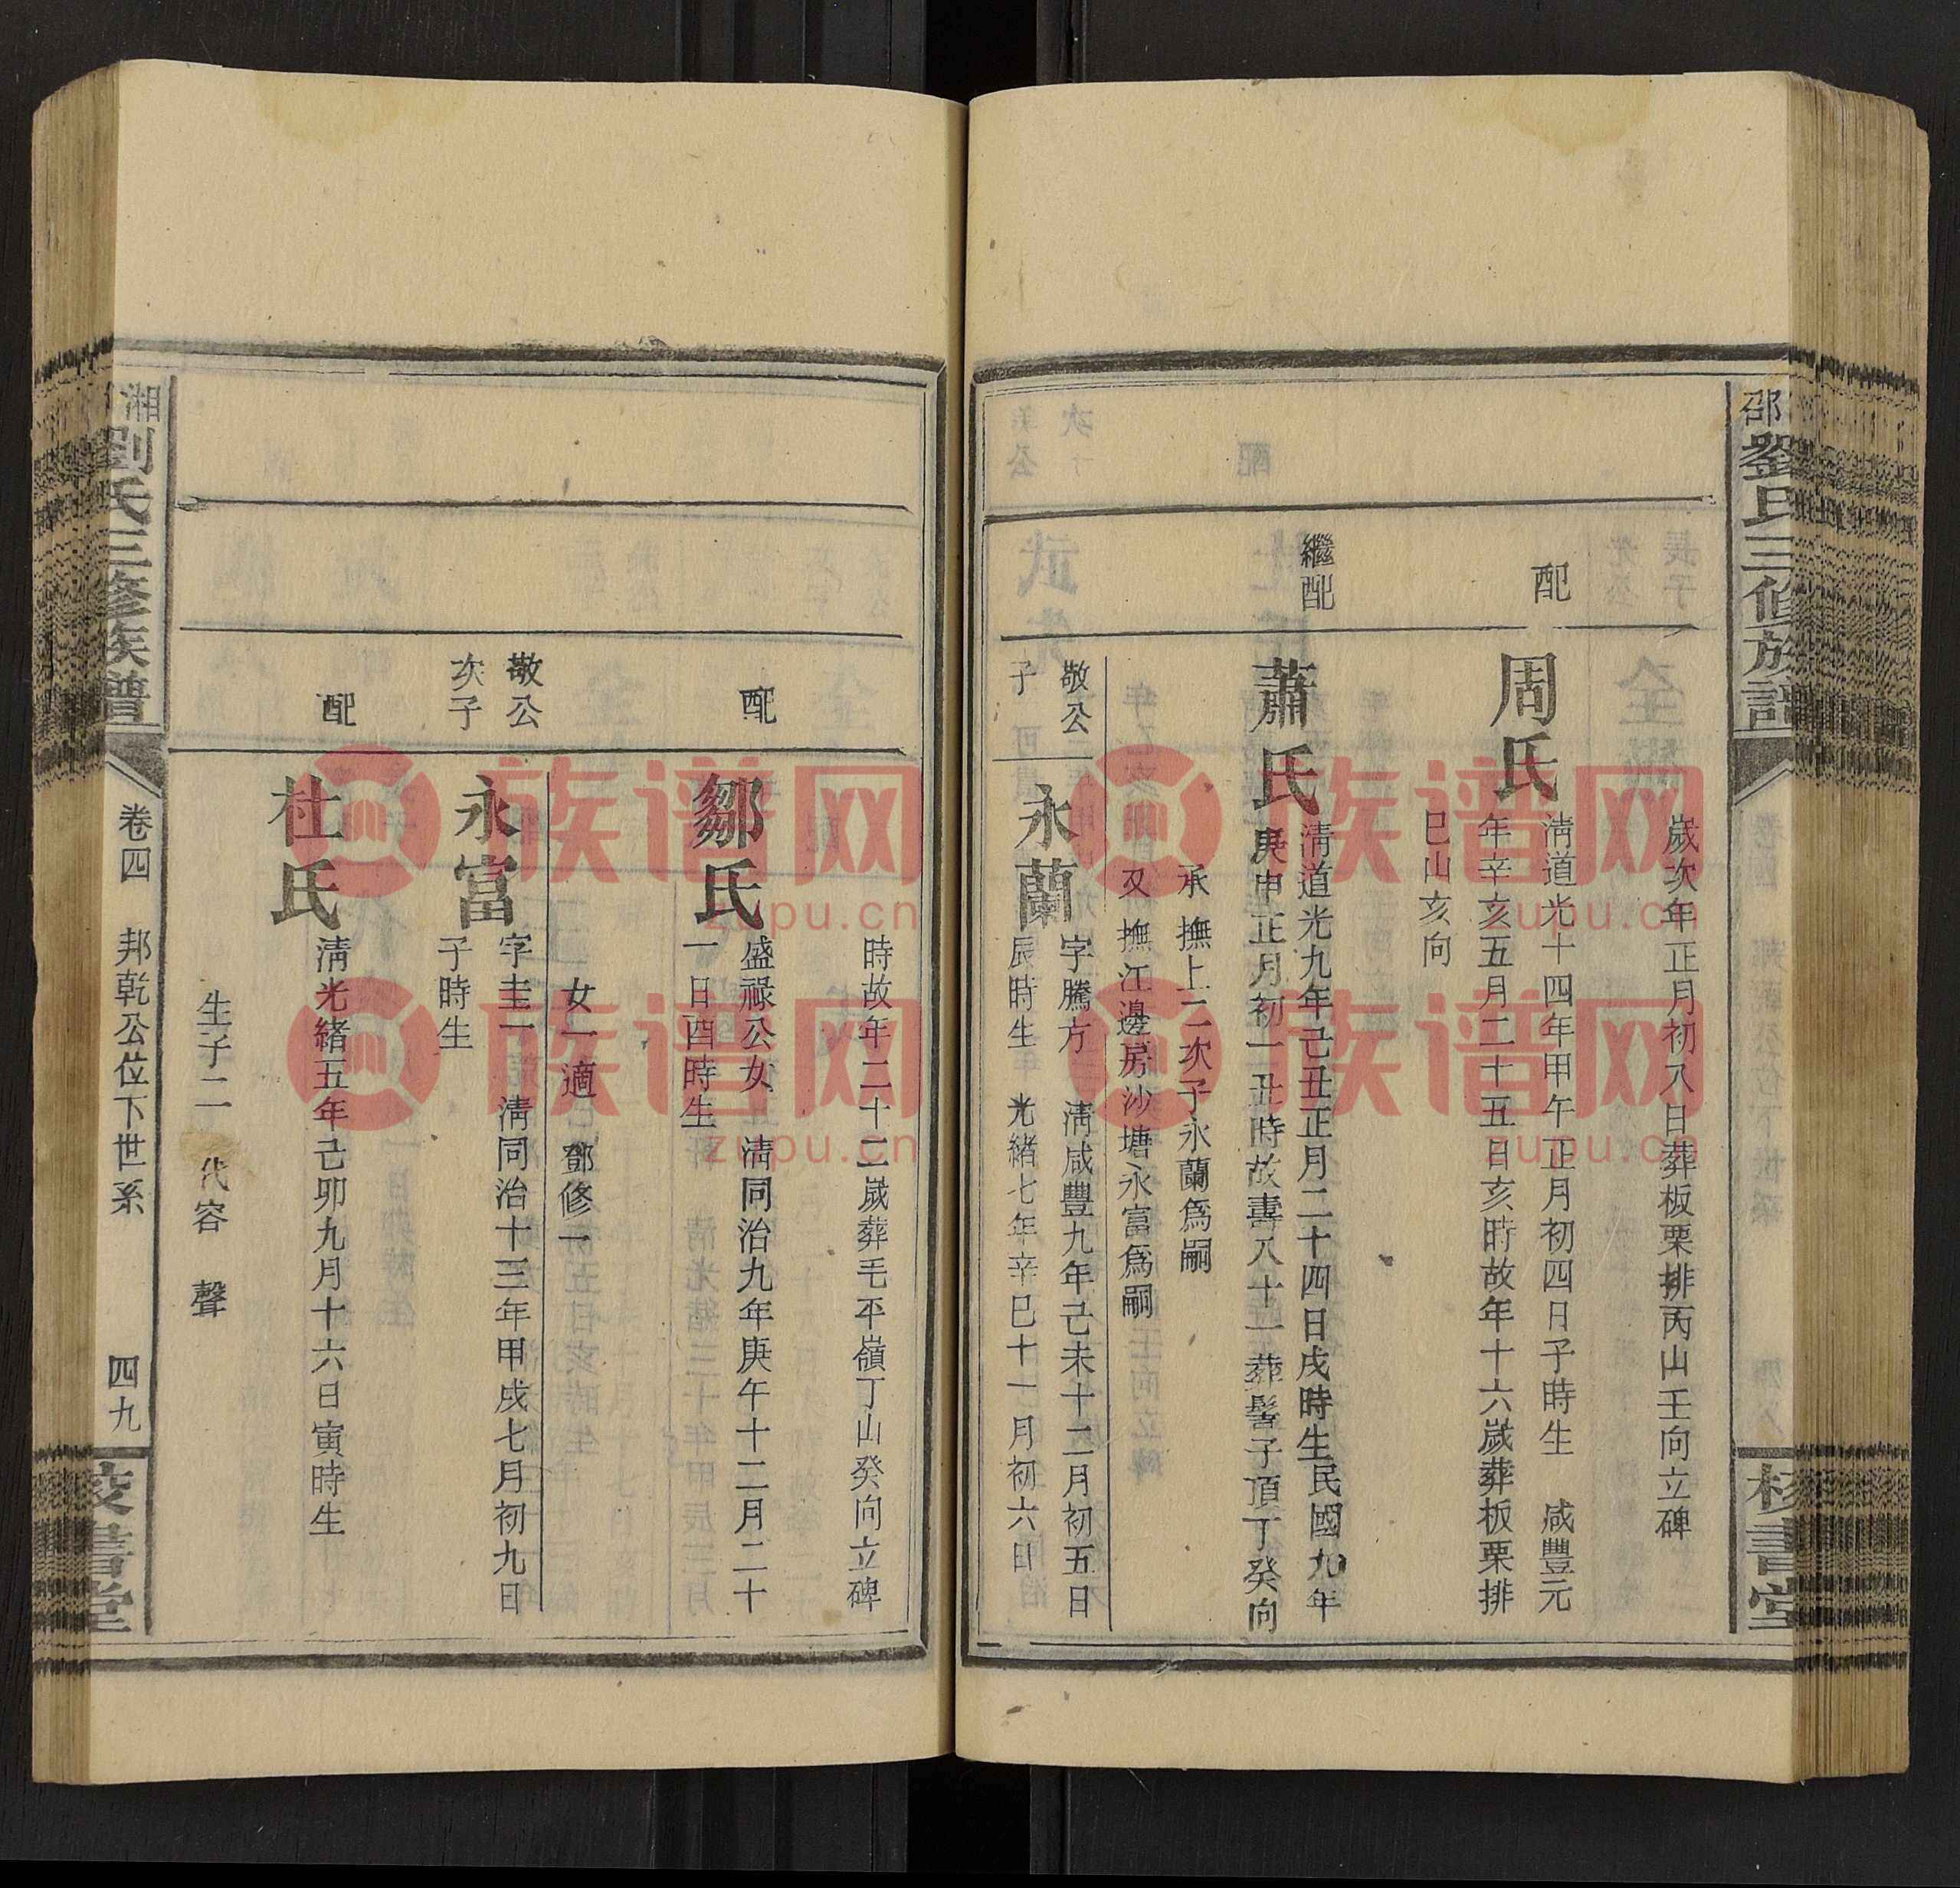 邵
劉氏三修族譜
校書堂
歲次年正月初八日葬板栗排丙山壬向立碑
配
周氏
清道光十四年甲午正月初四日子時生 咸豐元
年辛亥五月二十五日亥時故年十六歲葬板栗排
巳山亥向
繼配
蕭氏
清道光九年己丑正月二十四日戌時生民國九年
庚申正月初一丑時故壽八十一葬髻子頂丁癸向
承 撫上二次子永蘭爲嗣
又 撫江邊房沙塘永富爲嗣
敬公
子
永蘭
字騰方 清咸豐九年己未十二月初五日
辰時生 光緒七年辛巳十一月初六日
時故年二十二歲葬毛平嶺丁山癸向立碑
配
鄒氏
盛祿公女 清同治九年庚午十二月二十
一日酉時生
女一適 鄧修一
敬公
次子
永富
字圭一 清同治十三年甲戌七月初九日
子時生
配
杜氏
清光緒五年己卯九月十六日寅時生
生子二 代容 聲
湘
劉氏三修族譜
卷四 邦乾公位下世系 四九
校書堂
族谱网
zupu.cn
族谱网
zupu.cn
族谱网
zupu.cn
族谱网
zupu.cn